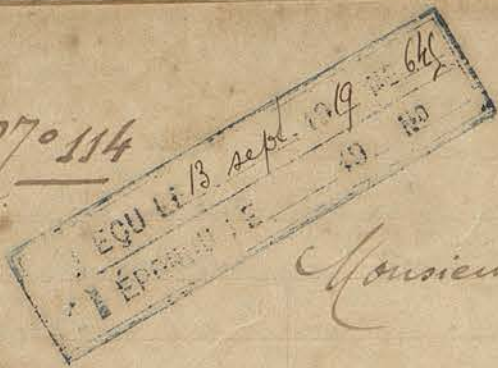 N° 114
REÇU LE 13 sept. 1919 No 645
RÉPONDU LE 19 No
Monsieu